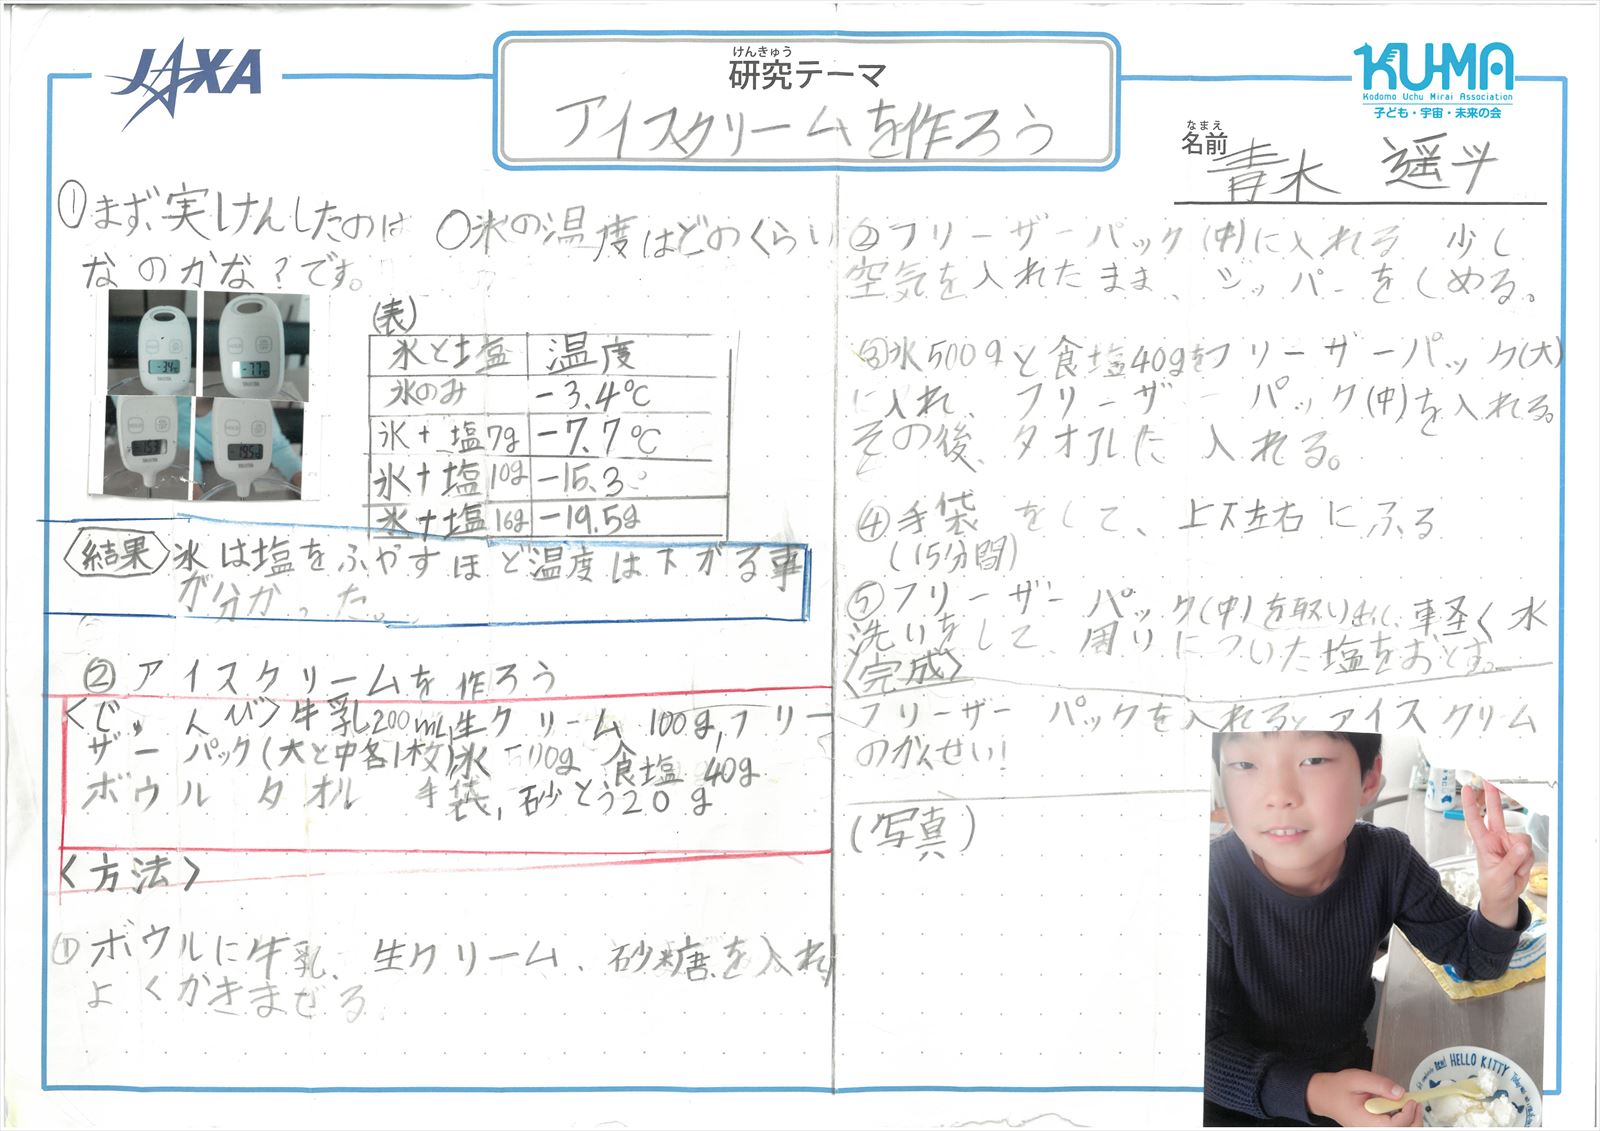 JAXA
けんきゅう
研究テーマ
アイスクリームを作ろう
KUMA
Kodomo Uchu Mirai Association
子ども・宇宙・未来の会
なまえ
名前
青木 遥斗
①まず、実けんしたのは 〇氷の温度はどのくらい
なのかな?です。
(表)
氷と塩 温度
氷のみ -3.4℃
氷+塩7g -7.7℃
氷+塩10g -15.3°
氷+塩16g -19.5g
-3.4℃
-7.7℃
-15.3
-19.5
〈結果〉氷は塩をふやすほど温度は下がる事
が分かった。
② アイスクリームを作ろう
〈じゅんび〉牛乳200mL 生クリーム 100g,フリー
ザーパック(大と中各1枚)氷 500g 食塩 40g
ボウル タオル 手袋,砂とう20g
〈方法〉
①ボウルに牛乳、生クリーム、砂糖を入れ
よくかきまぜる
②フリーザーパック(中)に入れる 少し
空気を入れたまま、ジッパーをしめる。
③氷500gと食塩40gをフリーザーパック(大)
に入れ、フリーザーパック(中)を入れる。
その後、タオルに入れる。
④手袋をして、上下左右にふる
(15分間)
⑤フリーザーパック(中)を取り出し、軽く水
洗いをして、周りについた塩をおとす。
〈完成〉
フリーザーパックを入れるとアイスクリーム
のかんせい!
(写真)
HELLO KITTY